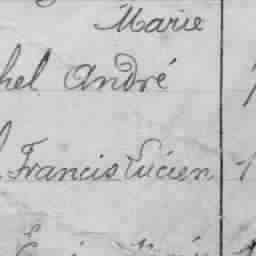 Marie
hel André
Francis Lucien